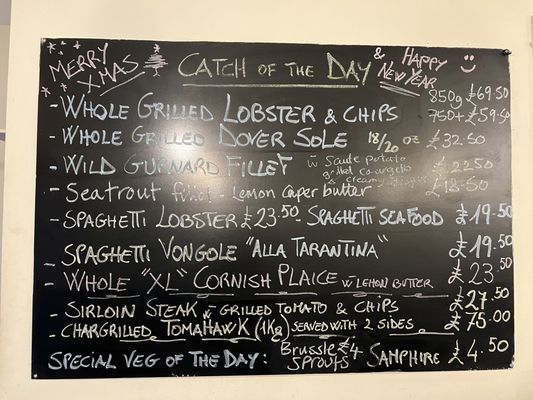 MERRY XMAS CATCH OF THE DAY & HAPPY NEW YEAR
- WHOLE GRILLED LOBSTER & CHIPS 850g £69.50
750+ £59.50
- WHOLE GRILLED DOVER SOLE 18/20 oz £32.50
- WILD GURNARD FILLET w̄ Saute potato £22.50
grilled
& creamy
- Seatrout fillet - Lemon caper butter £18.50
- SPAGHETTI LOBSTER £23.50 SPAGHETTI SEAFOOD £19.50
- SPAGHETTI VONGOLE "ALLA TARANTINA" £19.50
- WHOLE "XL" CORNISH PLAICE w̄ LEMON BUTTER £23.50
- SIRLOIN STEAK w̄ GRILLED TOMATO & CHIPS £27.50
- CHARGRILLED TOMAHAWK (1Kg) SERVED WITH 2 SIDES. £75.00
SPECIAL VEG OF THE DAY: Brussle £4 SAMPHIRE £4.50
SPROUTS